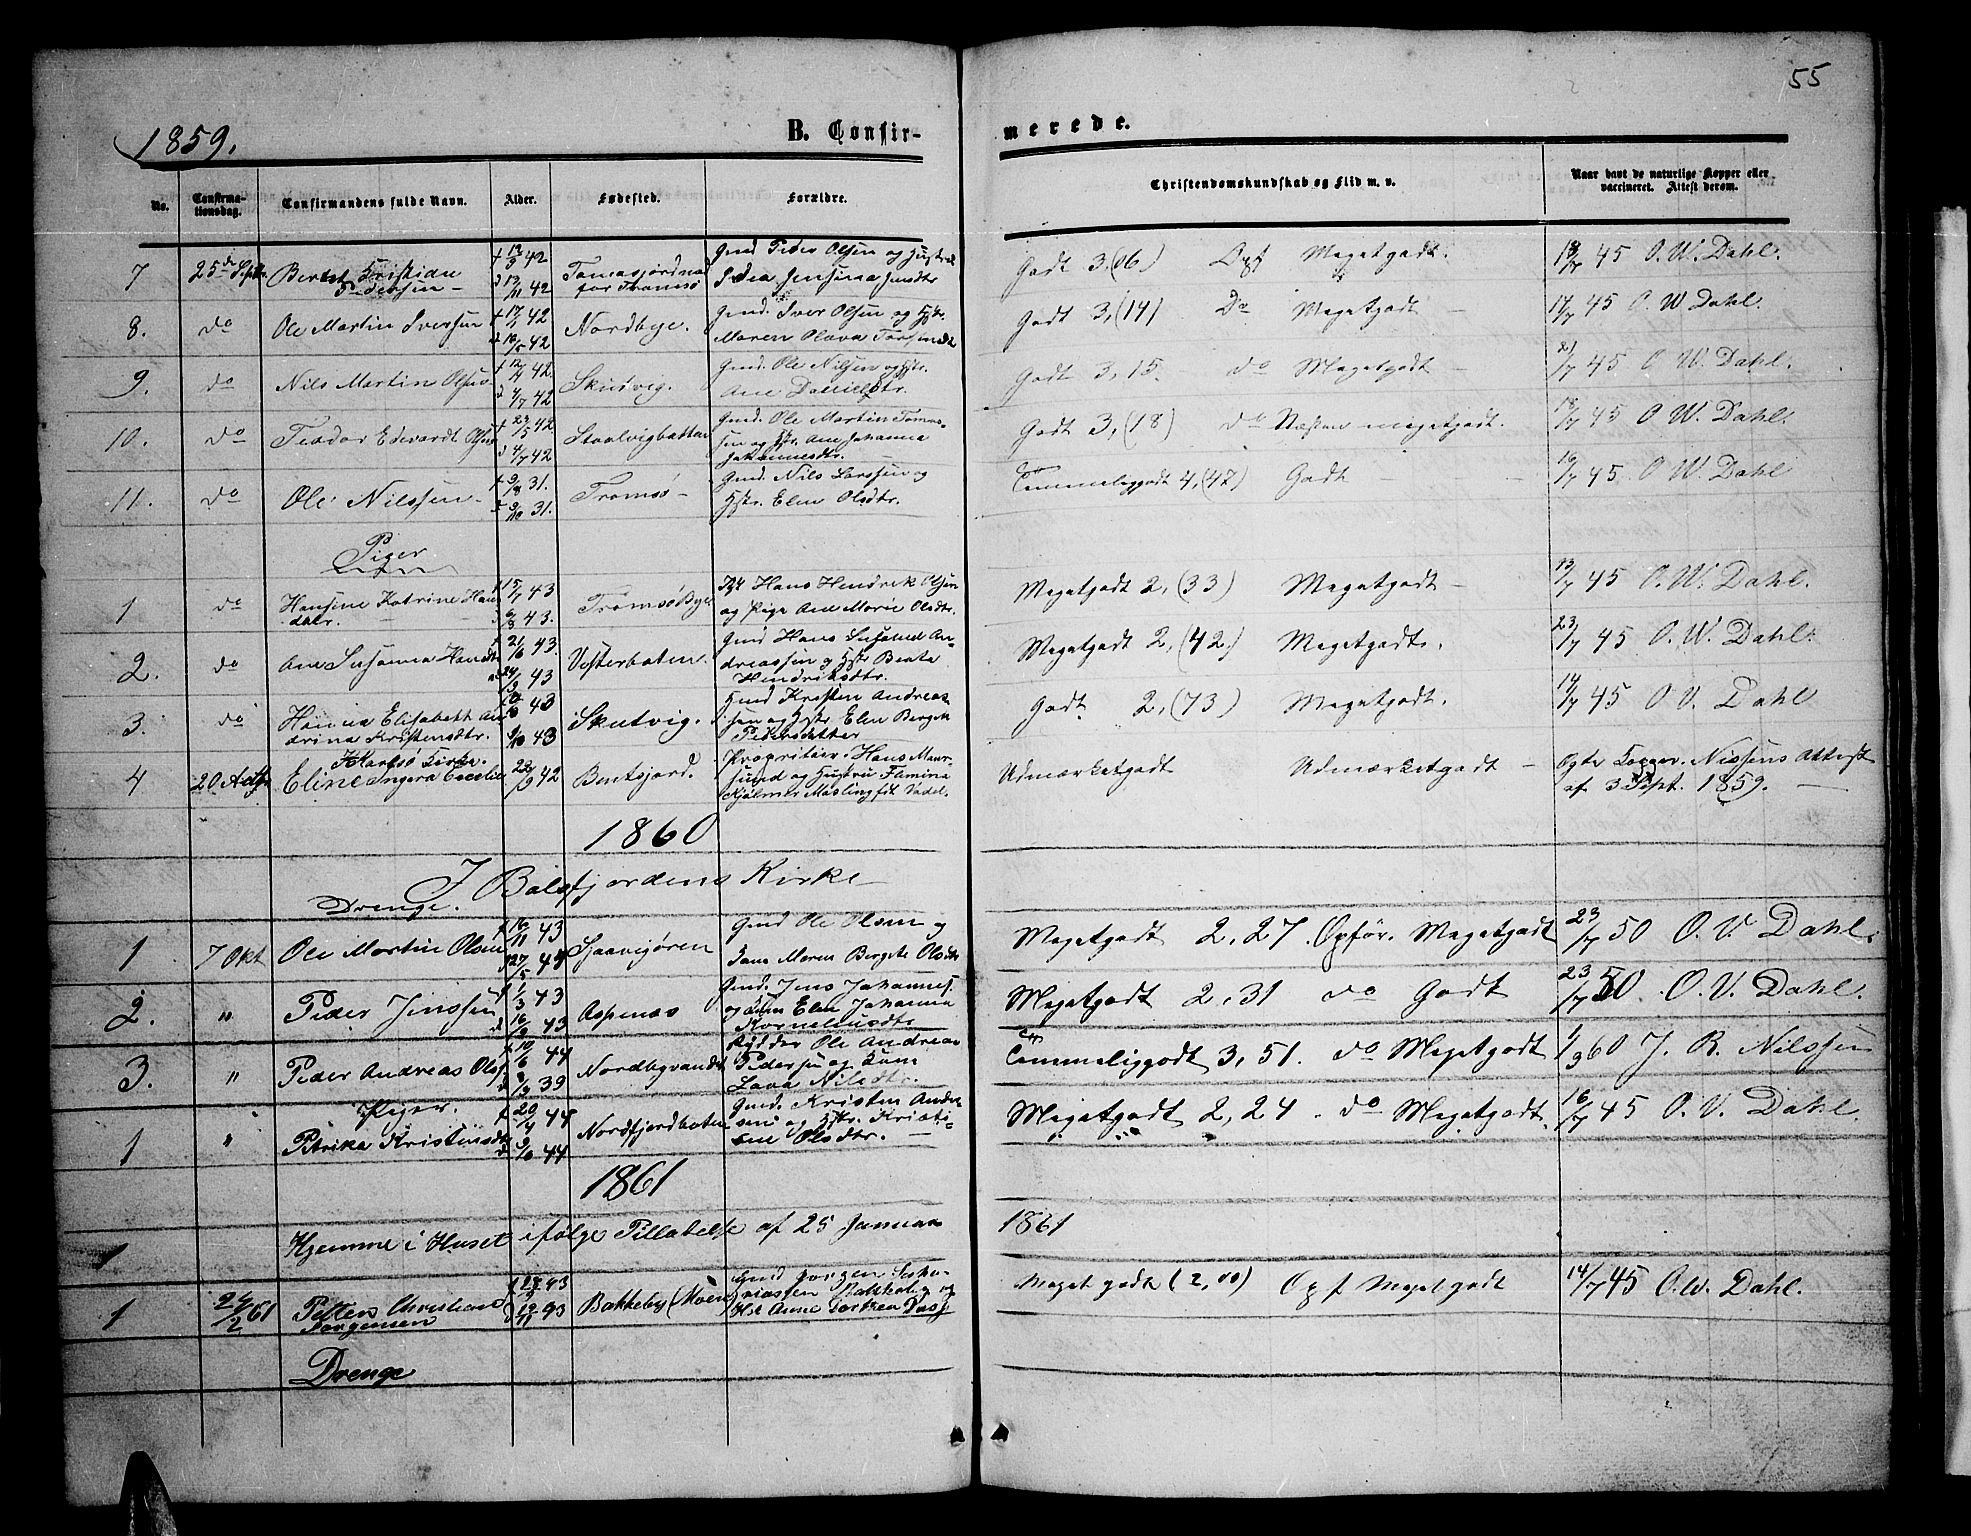 55
1859.
B. Confir-
merede.
No.
Confirma-
tionsdag.
Confirmandens fulde Navn.
Alder.
Fødested.
Forældre.
Christendomskundskab og Flid m. v.
Naar havt de naturlige Kopper eller
vaccineret. Attest derom.
7 25de Septr Berent Kristian Pedersen 42 42 Tomasjordnes for Tromsø Gmd Peder Olsen og Hustru Jensina Godt 3, Opf Megetgodt. 45 O. W. Dahl.
8. do Ole Martin Iversen 42 42 Nordbye. Gmd. Iver Olsen og Hstr. Maren Olava Godt 3, (14) Do Megetgodt 17/7 45 O. W. Dahl.
9. do Nils Martin Olsen 42. 4/7 42 Skutvig. Gmd. Ole Nilsen og Hstr. Ane Godt 3, 15. do Megetgodt 21/7 45 O. W. Dahl.
10. do Teodor Edevardt Olsen 42 4/7 42 Gmd. Ole Martin og Hstr. Ane Johanna Johannesdtr. Godt 3, (18) do Næsten megetgodt. 18/7 45 O. W. Dahl.
11. do Ole Nilssen 9/8 31. 9/10 31. Tromsø Gmd. Nils Larssen og Hstr. Elen Olsdtr. Temmeliggodt 4, (42) Godt 45 O. W. Dahl
Piger
1 do Hansine Katrine Hansdatr. 15/7 43 6/8 43. Tromsø Bye Hans Hendrik Olsen og Pige Ane Marie Olsdtr. Megetgodt 2, (33) Megetgodt 13/7 45 O. W. Dahl.
2. do Ane Susanna Hansdtr 43. 24/9 43 Vesterbotn. Gmd Hans Andreassen og Hstr Berta Hendriksdtr. Megetgodt 2, (42.) Megetgodt. 23/7 45 O. W. Dahl.
3. do Hanna Elisabett Andrina Kristensdtr. 43 9/10 43 Skutvig. Gmd Kristen Andreassen og Hstr Elen Bergete Pedersdatter Godt 2, (73) Megetgodt. 14/7 45 O. V. Dahl
Karlsø Kirke.
4 20 Eline Ingera Cecelie 42 Bentsjord. Propritær Hans og Hustru Flamina Hjelmer Udmærketgodt Udmærketgodt Nissens Attest af 3 Sept. 1859.
1860
I Balsfjordens Kirke
Drenge.
1 7 Okt Ole Martin Olsen 16/11 43 27/5 44 Gmd Ole Olsen og Maren Bergete Olsdtr Megetgodt 2, 27. Opfør. Megetgodt 23/7 50 O. V. Dahl.
2. " Peder Jenssen 1/3 43 16/9 43 Aspenas Gmd. Jens Johannes. og Elen Johanna Kornelius dtr Megetgodt 2, 31 do Godt 23/7 50. O. V. Dahl.
3. " Peder Andreas Ols. 44 39 Nordbyvandt Ole Andreas Pedersen og Nilsdtr. Temmeliggodt 3, 51. do Megetgodt 1/9 60 J. R. Nilssen
Piger.
1 " Petrika Kristensdtr 20/4 44 44 Nordfjordboten Gmd. Kristen Andresens og Hstr. Kristine Olsdtr. Megetgodt 2, 24. do Megetgodt. 16/7 45 O. V. Dahl.
1861
1 Hjemme i Huset ifølge Tilladelse af 25 Januar
1861
1 24/2 61 Petter Christian Jørgensen 43 12/11 43 Bakkeby (Moen) Gmd Jørgen og Hst Anne Meget godt (2,00) Opf Megetgodt 14/7 45 O. W. Dahl.
Drenge